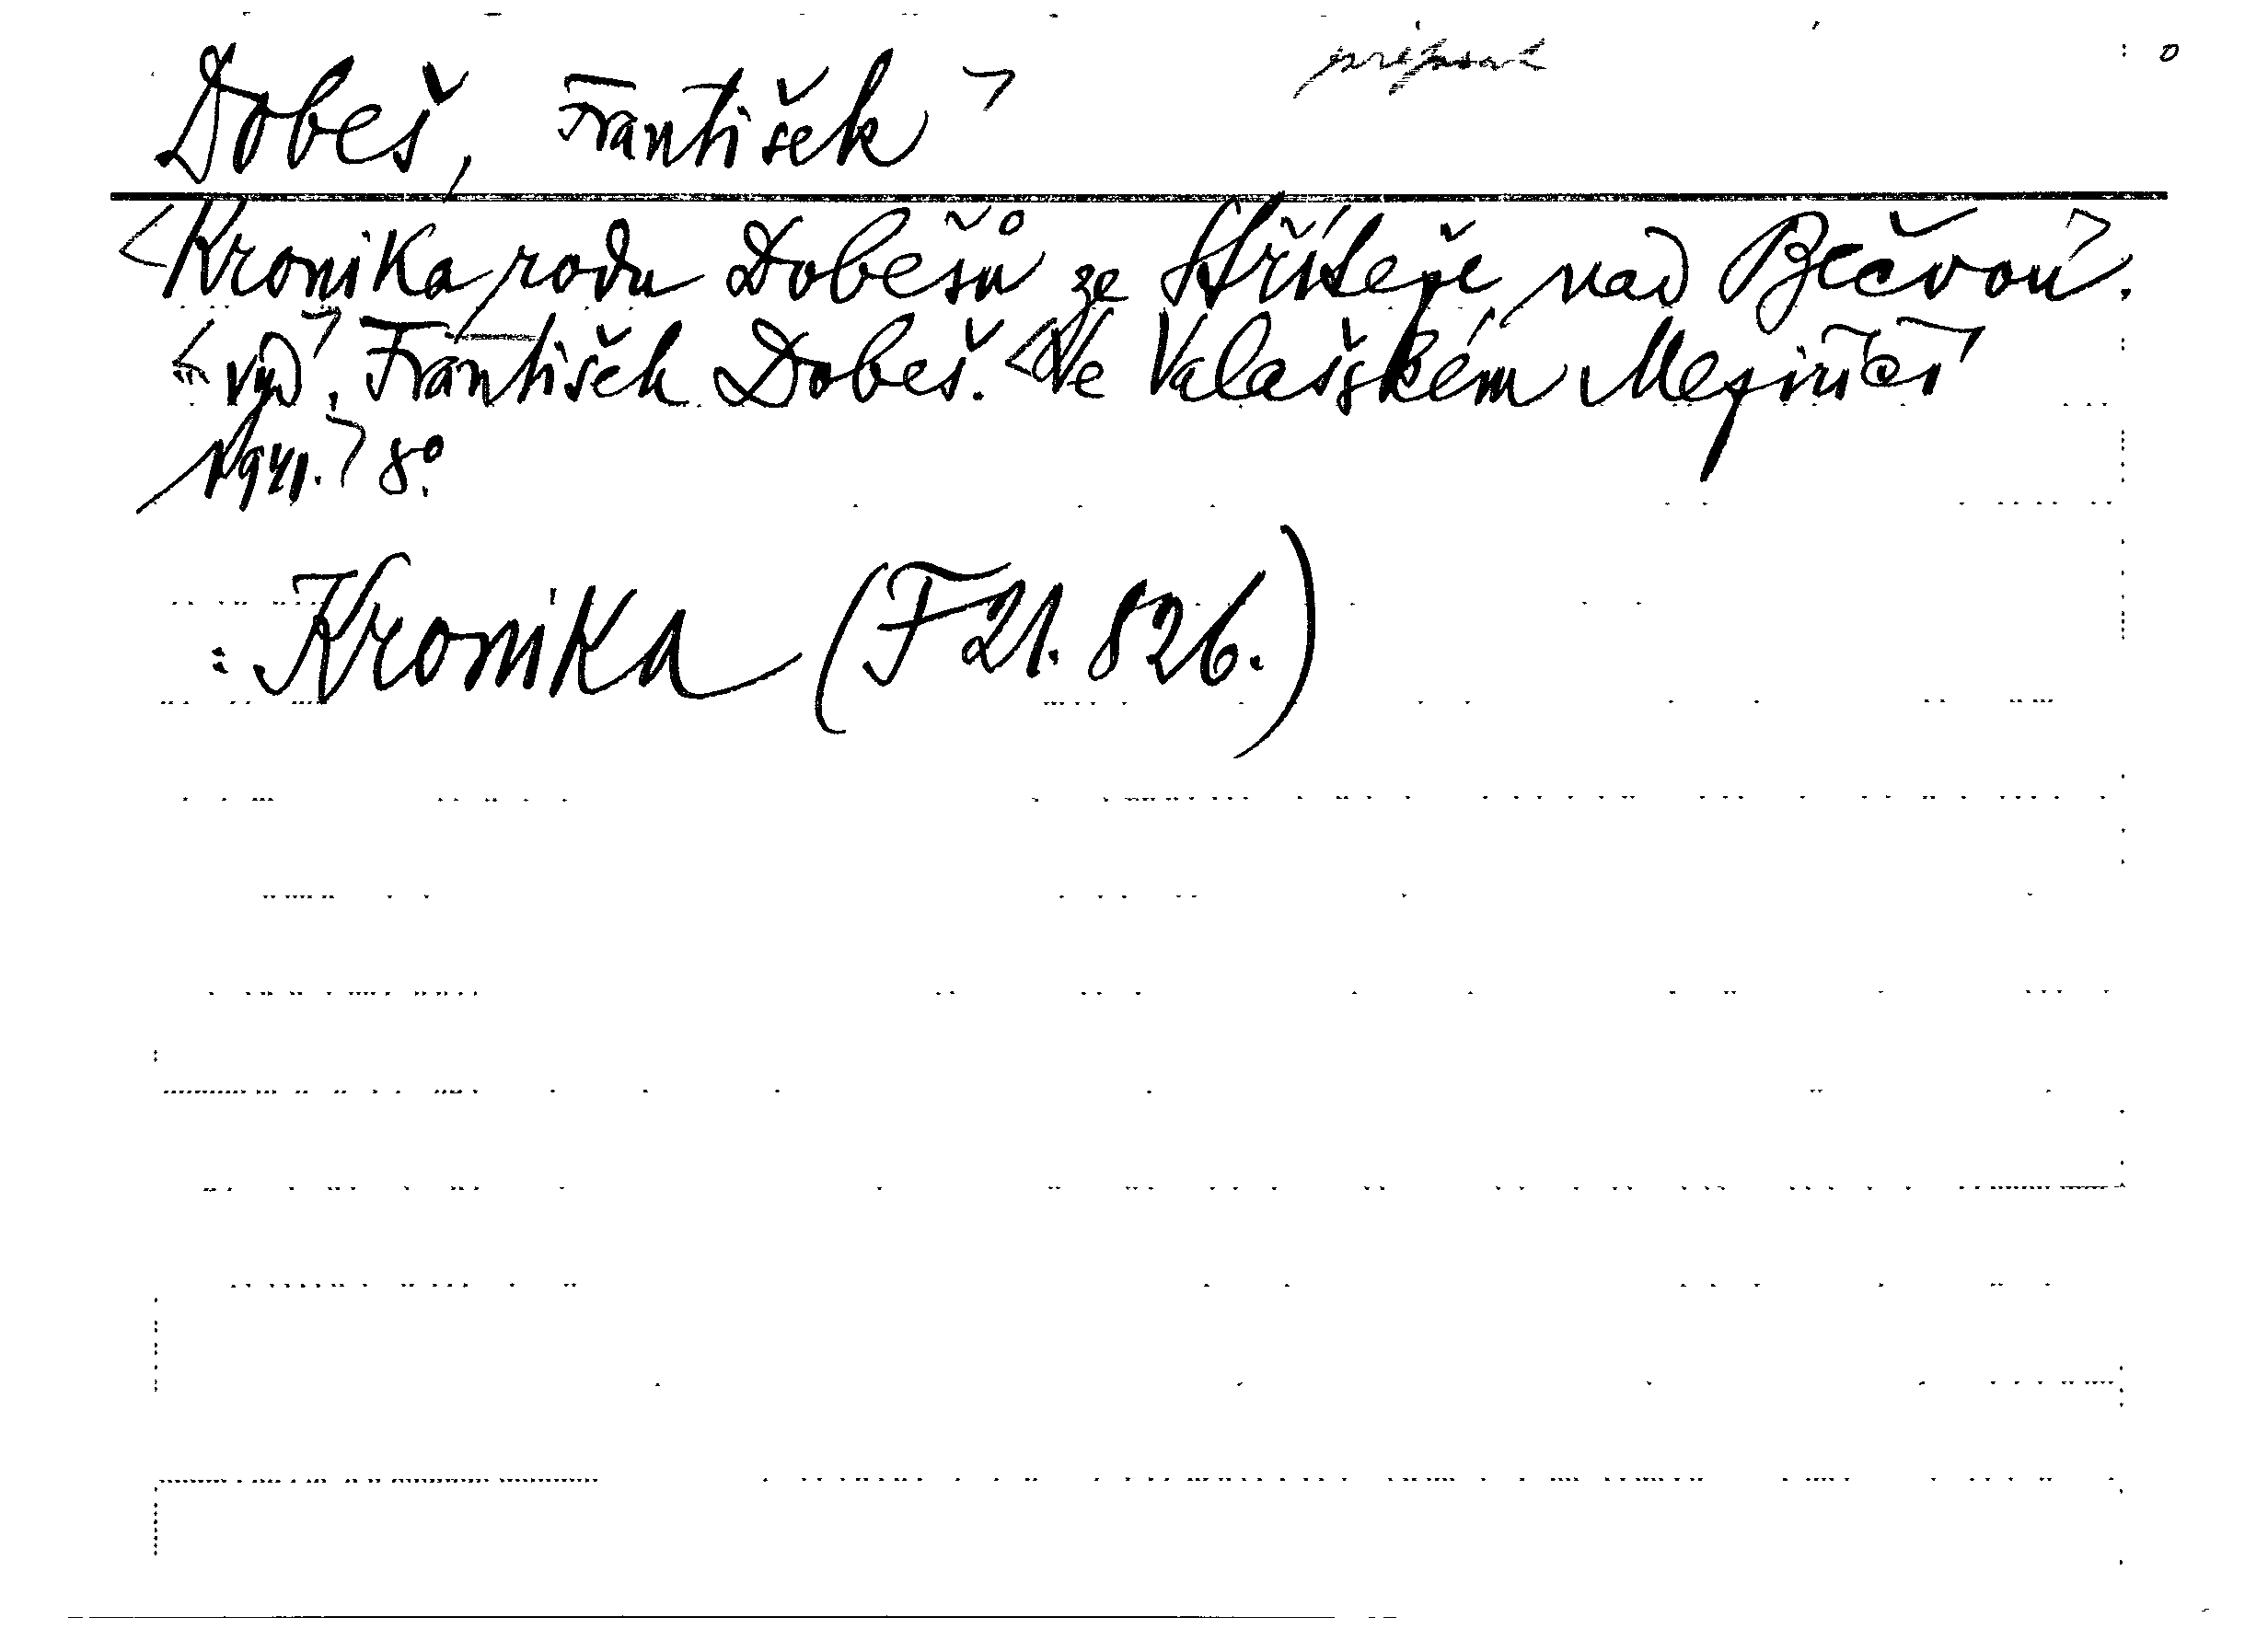 Dobeš, František
Kronika rodu Dobešů ze Stříteže nad Bečvou.
vyd. František Dobeš. Ve Valašském Meziříčí
1941. 8°.
: Kronika (F 21.826.)